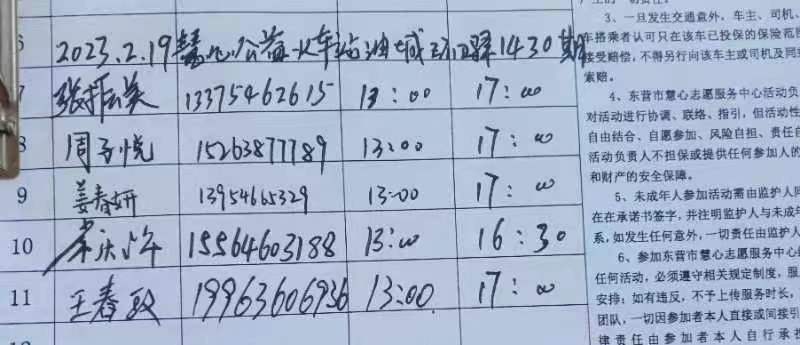 6 2023.2.19慧心公益火车站油城环卫驿1430期
7 张振美 13375462615 13:00 17:00
8 周子悦 15263877789 13:00 17:00
9 姜春妍 13954665329 13:00 17:00
10 15564603188 13:00 16:30
11 王春政 19963606936 13:00 17:00
3、一旦发生交通意外，车主、司机、
车搭乘者认可只在该车已投保的保险范围
接受赔偿，不得另行向该车主或司机及同
索赔。
4、东营市慧心志愿服务中心活动负
对活动进行协调、联络、指引，但活动性
自由结合、自愿参加、风险自担、责任自
活动负责人不担保或提供任何参加人的
和财产的安全保障。
5、未成年人参加活动需由监护人同
在在承诺书签字，并注明监护人与未成年
系，如发生任何意外，一切责任由监护人
6、参加东营市慧心志愿服务中心
任何活动，必须遵守相关规定制度，服
安排；如有违反，不予上传服务时长，
团队，一切因参加者本人直接或间接引
律责任由参加者本人自行承担